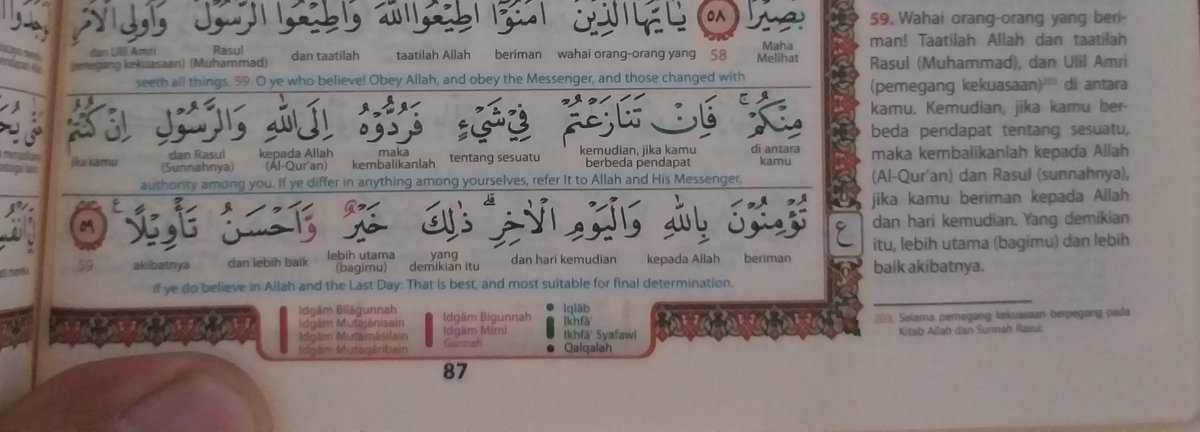 بَصِيْرًا ٥٨ يٰٓاَيُّهَا الَّذِيْنَ اٰمَنُوْٓا اَطِيْعُوا اللّٰهَ وَاَطِيْعُوا الرَّسُوْلَ وَاُولِى الْاَمْرِ
Maha Melihat 58 wahai orang-orang yang beriman taatilah Allah dan taatilah Rasul (Muhammad) dan Ulil Amri (pemegang kekuasaan)
seeth all things. 59. O ye who believe! Obey Allah, and obey the Messenger, and those changed with
مِنْكُمْۚ فَاِنْ تَنَازَعْتُمْ فِيْ شَيْءٍ فَرُدُّوْهُ اِلَى اللّٰهِ وَالرَّسُوْلِ اِنْ كُنْتُمْ
di antara kamu kemudian, jika kamu berbeda pendapat tentang sesuatu maka kembalikanlah kepada Allah (Al-Qur'an) dan Rasul (Sunnahnya) jika kamu
authority among you. If ye differ in anything among yourselves, refer It to Allah and His Messenger,
تُؤْمِنُوْنَ بِاللّٰهِ وَالْيَوْمِ الْاٰخِرِۗ ذٰلِكَ خَيْرٌ وَّاَحْسَنُ تَأْوِيْلًا ࣖ ٥٩
beriman kepada Allah dan hari kemudian yang demikian itu lebih utama (bagimu) dan lebih baik akibatnya 59
If ye do believe in Allah and the Last Day: That is best, and most suitable for final determination.
ع
Idgām Bilāgunnah
Idgām Mutajānisain
Idgām Mutamāsilain
Idgām Mutaqāribain
Idgām Bigunnah
Idgām Mimī
Gunnah
Iqlāb
Ikhfā'
Ikhfā' Syafawi
Qalqalah
87
59. Wahai orang-orang yang beri-
man! Taatilah Allah dan taatilah
Rasul (Muhammad), dan Ulil Amri
(pemegang kekuasaan)203 di antara
kamu. Kemudian, jika kamu ber-
beda pendapat tentang sesuatu,
maka kembalikanlah kepada Allah
(Al-Qur'an) dan Rasul (sunnahnya),
jika kamu beriman kepada Allah
dan hari kemudian. Yang demikian
itu, lebih utama (bagimu) dan lebih
baik akibatnya.
203. Selama pemegang kekuasaan berpegang pada
Kitab Allah dan Sunnah Rasul